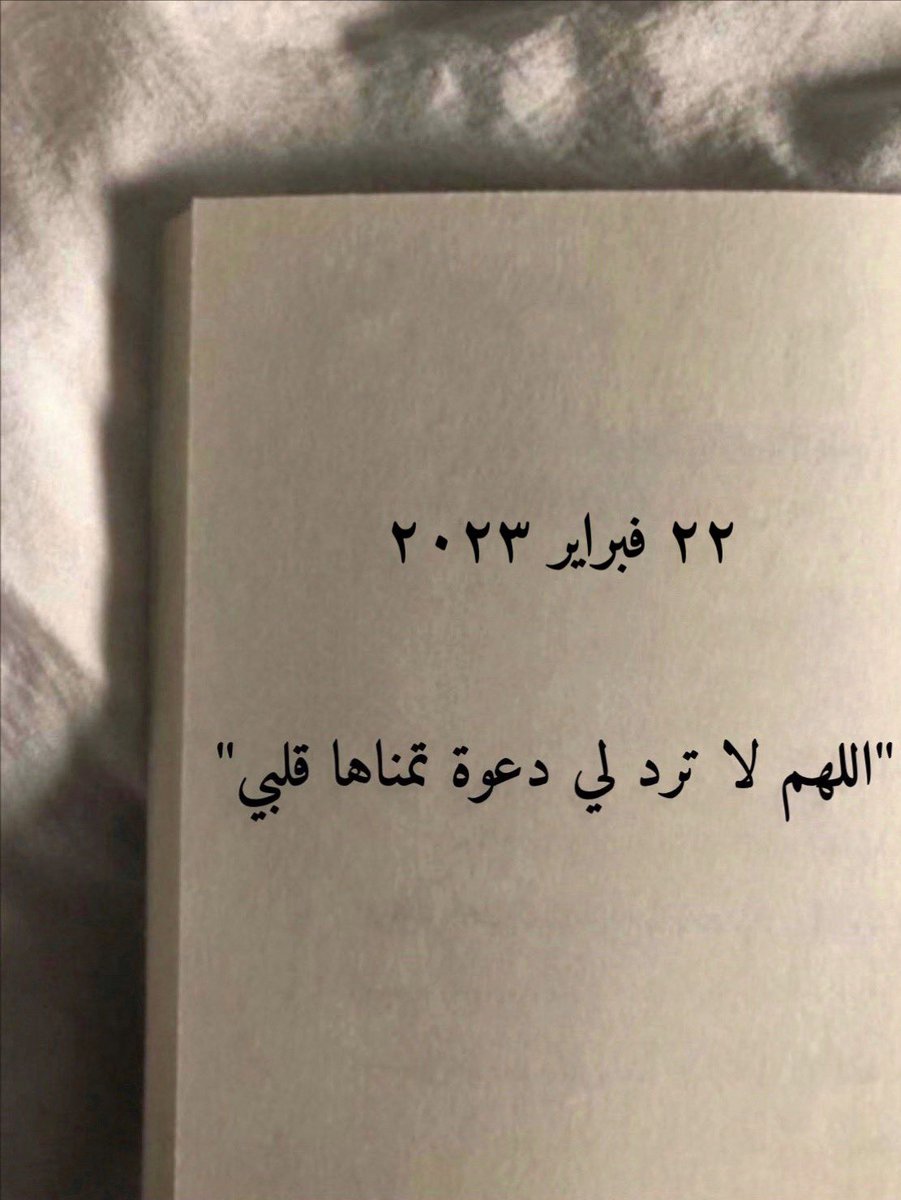 ٢٢ فبراير ٢٠٢٣
"اللهم لا ترد لي دعوة تمناها قلبي"